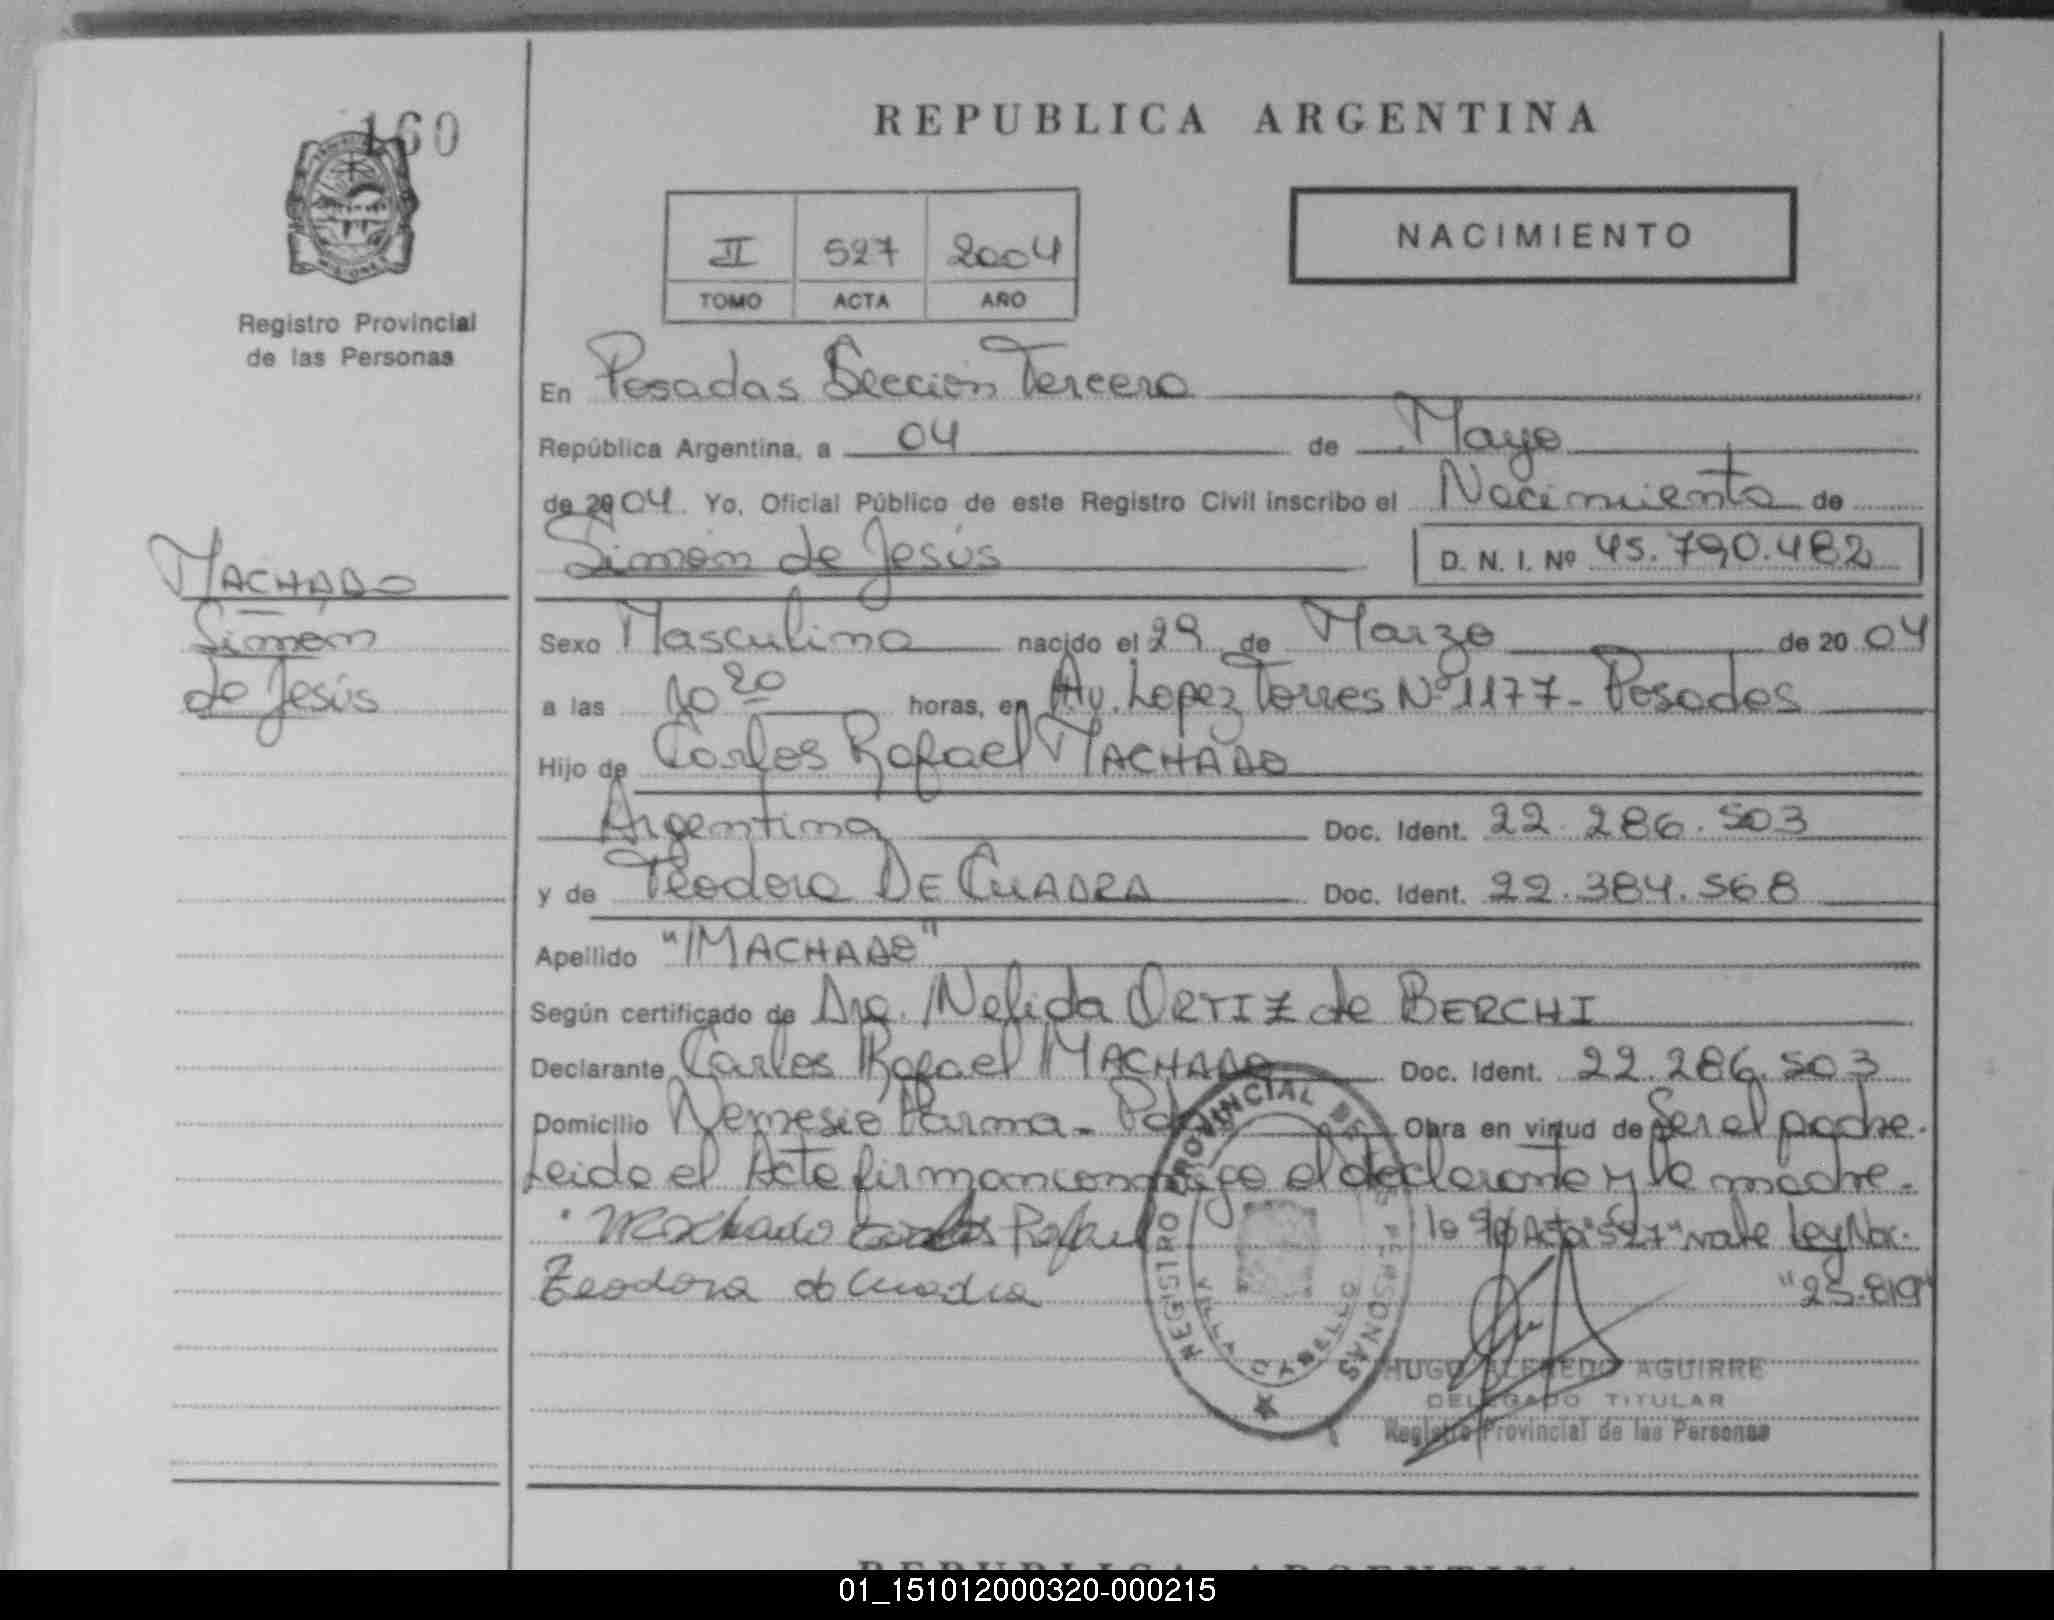 160
REPUBLICA ARGENTINA
II 527 2004
TOMO ACTA AÑO
NACIMIENTO
Registro Provincial
de las Personas
En Posadas Sección Tercera
República Argentina, a 04 de Mayo
de 2004. Yo, Oficial Público de este Registro Civil inscribo el Nacimiento de
Simón de Jesús D. N. I. Nº 45.790.482
MACHADO
Simón
de Jesús
Sexo Masculino nacido el 29 de Marzo de 2004
a las 10 20 horas, en Av. Lopez Torres Nº 1177 - Posadas
Hijo de Carlos Rafael MACHADO
Argentina Doc. Ident. 22.286.503
y de Teodora DE CUADRA Doc. Ident. 22.384.568
Apellido "MACHADO"
Según certificado de Dra. Nelida ORTIZ de BERCHI
Declarante Carlos Rafael MACHADO Doc. Ident. 22.286.503
Domicilio Nemesio Parma - Pdas Obra en virtud de Ser el padre.
Leida el Acta firman conmigo el declarante y la madre.
Machado Carlos Rafael Acta "527" vale Ley Nac.
Teodora de Cuadra "25.819"
REGISTRO PROVINCIAL DE LAS PERSONAS
VILLA CABELLO
HUGO ALFREDO AGUIRRE
DELEGADO TITULAR
Registro Provincial de las Personas
REPUBLICA ARGENTINA
01_151012000320-000215